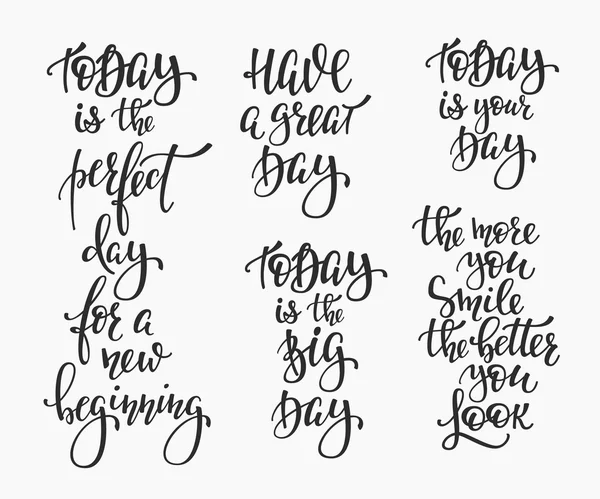 Today
is the
perfect
day
for a
new
beginning
Have
a great
Day
Today
is the
Big
Day
Today
is your
Day
the more
you
Smile
the better
you
Look